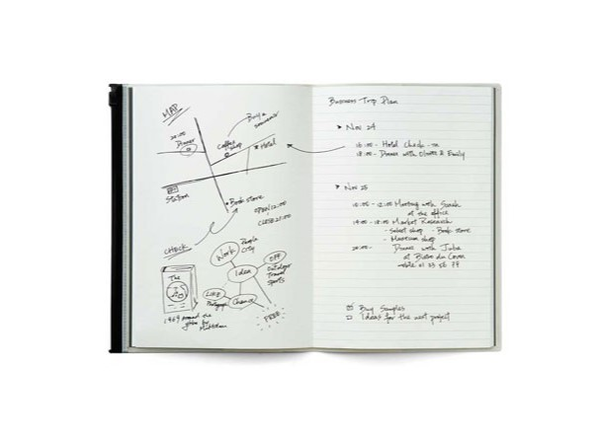 MAP
20:00
Dinner
Coffee
shop
Buy a
souvenir
Hotel
Station
Book store
OPEN 12:00
CLOSE 21:00
CHECK
Work
People
City
Idea
OFF
Outdoor
Travel
Sports
LIKE
Chance
FREE
The
1964 around the
globe for
Business Trip Plan
Nov 24
Hotel Check-in
18:00 - Dinner with Oliver & Emily
Nov 25
Meeting with Sarah
at the office
Market Research
- Select shop - Book store
- Museum shop
20:00 - Dinner with Julie
at Bistro du Coeur
Buy Samples
Ideas for the next project